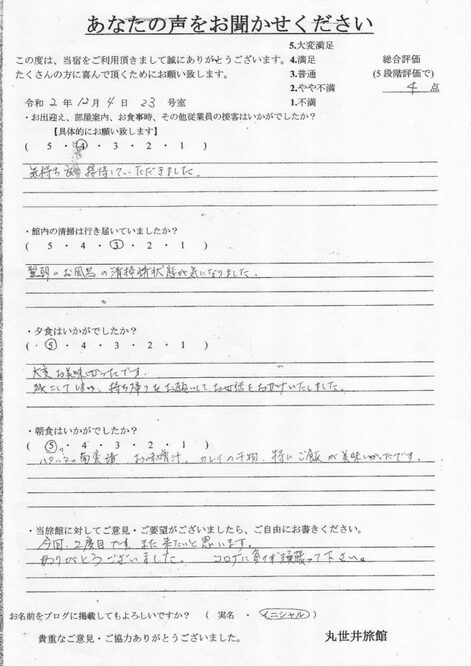 あなたの声をお聞かせください
この度は、当宿をご利用頂きまして誠にありがとうございます。
たくさんの方に喜んで頂くためにお願い致します。
5.大変満足
4.満足
3.普通
2.やや不満
1.不満
総合評価
(5段階評価で)
4 点
令和 2年 12月 4日 23号室
・お出迎え、部屋案内、お食事時、その他従業員の接客はいかがでしたか?
【具体的にお願い致します】
( 5 ・ 4 ・ 3 ・ 2 ・ 1 )
気持ち 接待していただきました。
・館内の清掃は行き届いていましたか?
( 5 ・ 4 ・ 3 ・ 2 ・ 1 )
翌朝のお風呂の清掃 状態が気になりました。
・夕食はいかがでしたか?
( 5 ・ 4 ・ 3 ・ 2 ・ 1 )
大変お美味しかったです。
残こしてしまい、持ち帰りをお願いしてお世話をおかけいたしました。
・朝食はいかがでしたか?
( 5 ・ 4 ・ 3 ・ 2 ・ 1 )
南蛮漬 お味噌汁、カレイの干物、特にご飯が美味しかったです。
・当旅館に対してご意見・ご要望がございましたら、ご自由にお書きください。
今回、2度目です。また来たいと思います。
ありがとうございました。 コロナに負けず頑張って下さい。
お名前をブログに掲載してもよろしいですか? ( 実名 ・ イニシャル )
貴重なご意見・ご協力ありがとうございました。
丸世井旅館